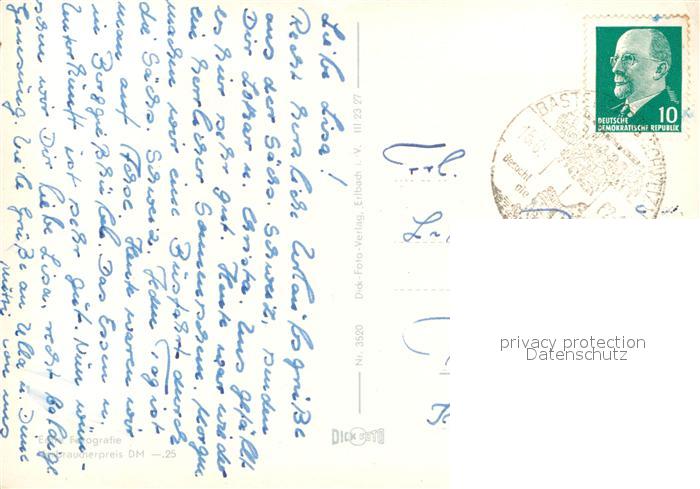 Liebe Lisa!
Recht herzliche Urlaubsgrüße
aus der Sächs. Schweiz senden
Dir Lothar u. Christa. Uns gefällt
es hier sehr gut. Heute war wieder
ein herrlicher Sonnenschein. Morgen
machen wir eine Busfahrt durch
die Sächs. Schweiz. Jeden Tag ist
man auf Achse. Heute waren wir
in Berggießhübel. Das Essen u.
Unterkunft ist sehr gut. Nun wün-
schen wir Dir liebe Lisa, recht baldige
Genesung. Viele Grüße an Ulla u. Deine
Mutti von uns
Echte Fotografie
Verbraucherpreis DM —.25
Nr. 3520 Dick-Foto-Verlag, Erlbach i. V. III 23 27
DICK FOTO
10
DEUTSCHE
DEMOKRATISCHE REPUBLIK
BASTEI
Besucht
die
Frl.
privacy protection
Datenschutz